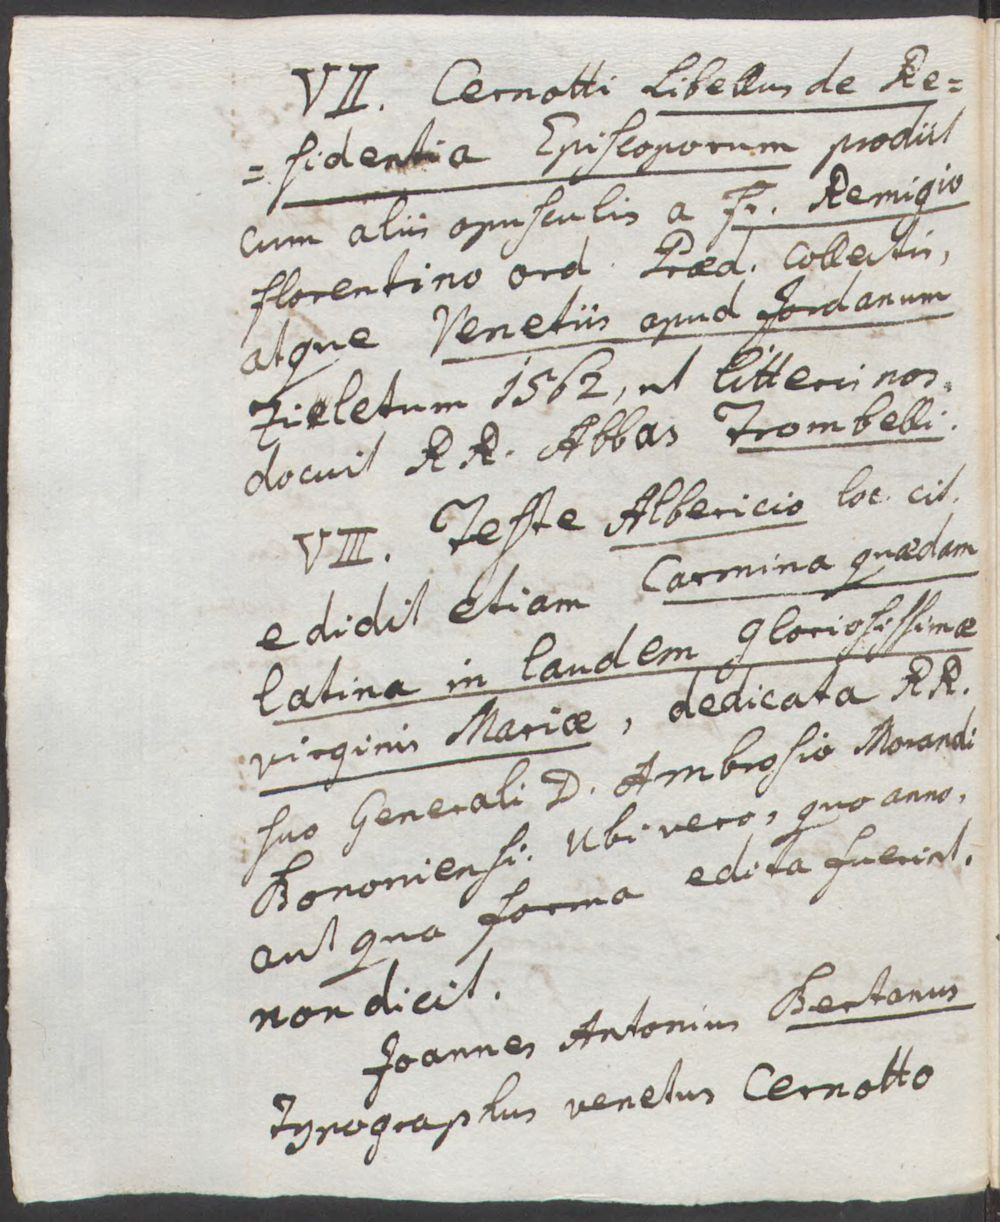 VII. Cernotti Libellus de Re=
=sidentia Episcoporum prodiit
cum aliis opusculis a Fr. Remigio
florentino ord. Præd. collectis,
atque Venetiis apud Jordanum
Zieletum 1562, ut litteris nos
docuit RR. Abbas Trombelli.
VIII. Teste Alberício loc. cit.
edidit etiam Carmina quædam
latina in laudem gloriosissimæ
virginis Mariæ, dedicata RR.
suo Generali D. Ambrosio Morandi
Bononiensi. Ubi vero, quo anno,
aut qua forma edita fuerint,
non dicit.
Joannes Antonius Bertanus
Typographus venetus Cernotto